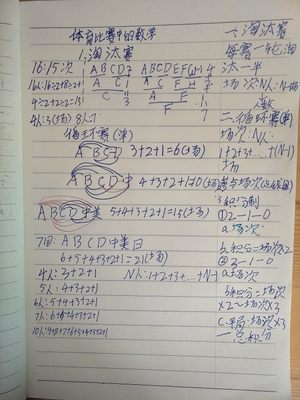 体育比赛中的数学
1.淘汰赛
16:15次 A B C D 7 A B C D E F G H 4
16人:16÷2=8÷2+1 A C 1 A C F H 2
4÷2+2÷2=15 C 3 A F 1
4人:3(场) 8人:7 F 7
循环赛(单)
A B C D 3+2+1=6(场)
A B C D 中 4+3+2+1=10(场)
A B C D 中美 5+4+3+2+1=15(场)
7日: A B C D 中美日
6+5+4+3+2+1=21(场)
4人: 3+2+1 N人: 1+2+3+…+N-1
5人: 4+3+2+1
6人: 5+4+3+2+1
7人: 6+5+4+3+2+1
10人: 9+8+7+6+5+4+3+2+1
一、淘汰赛
每赛一轮淘
汰一半
场次:N人:N-1场
人数
二、循环赛(单)
场次:N人:
1+2+3+…+(N-1)
场
与场次
3.积分制
①2-1-0
a.场次
b.积分=场次×2
②3-1-0
a.场次
b.积分=场次
×2~场次×3
c.平局:场次×3
-总积分